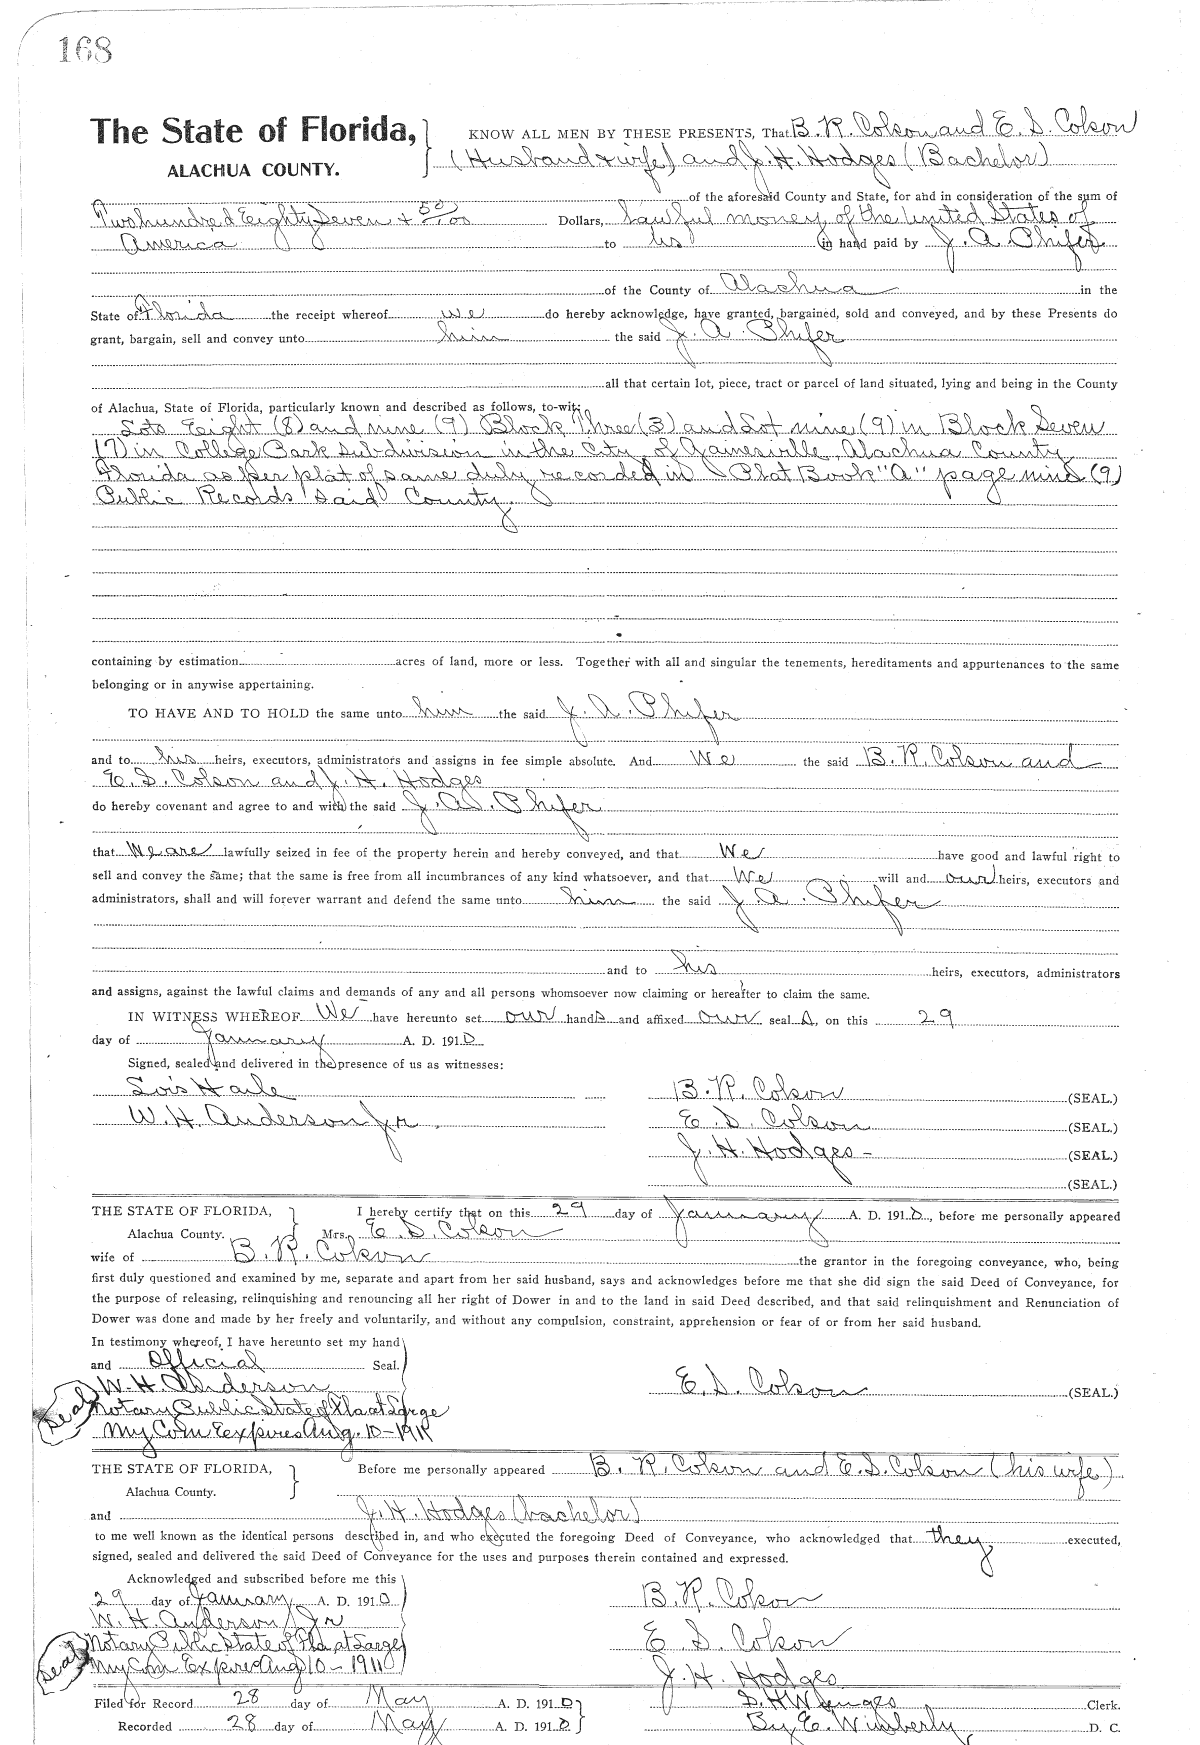 168
The State of Florida, KNOW ALL MEN BY THESE PRESENTS, That B. R. Colson and E. S. Colson
ALACHUA COUNTY. (Husband & wife) and J. H. Hodges (Bachelor)
of the aforesaid County and State, for and in consideration of the sum of
Two hundred Eighty Seven + 50/100 Dollars, Lawful money of the United States of
America to us in hand paid by J. A. Phifer
of the County of Alachua in the
State of Florida the receipt whereof we do hereby acknowledge, have granted, bargained, sold and conveyed, and by these Presents do
grant, bargain, sell and convey unto him the said J. A. Phifer
all that certain lot, piece, tract or parcel of land situated, lying and being in the County
of Alachua, State of Florida, particularly known and described as follows, to-wit:
Lots Eight (8) and nine (9) Block Three (3) and Lot nine (9) in Block Seven
(7) in College Park Subdivision in the City of Gainesville, Alachua County
Florida as per plat of same duly recorded in Plat Book "A" page nine (9)
Public Records said County.
containing by estimation acres of land, more or less. Together with all and singular the tenements, hereditaments and appurtenances to the same
belonging or in anywise appertaining.
TO HAVE AND TO HOLD the same unto him the said J. A. Phifer
and to his heirs, executors, administrators and assigns in fee simple absolute. And We the said B. R. Colson and
E. S. Colson and J. H. Hodges
do hereby covenant and agree to and with the said J. A. Phifer
that We are lawfully seized in fee of the property herein and hereby conveyed, and that We have good and lawful right to
sell and convey the same; that the same is free from all incumbrances of any kind whatsoever, and that We will and our heirs, executors and
administrators, shall and will forever warrant and defend the same unto him the said J. A. Phifer
and to his heirs, executors, administrators
and assigns, against the lawful claims and demands of any and all persons whomsoever now claiming or hereafter to claim the same.
IN WITNESS WHEREOF We have hereunto set our hands and affixed our seal s, on this 29
day of January A. D. 1910
Signed, sealed and delivered in the presence of us as witnesses:
Lois Haile B. R. Colson (SEAL.)
W. H. Anderson Jr. E. S. Colson (SEAL.)
J. H. Hodges - (SEAL.)
(SEAL.)
THE STATE OF FLORIDA, I hereby certify that on this 29 day of January A. D. 1910, before me personally appeared
Alachua County. Mrs. E. S. Colson
wife of B. R. Colson the grantor in the foregoing conveyance, who, being
first duly questioned and examined by me, separate and apart from her said husband, says and acknowledges before me that she did sign the said Deed of Conveyance, for
the purpose of releasing, relinquishing and renouncing all her right of Dower in and to the land in said Deed described, and that said relinquishment and Renunciation of
Dower was done and made by her freely and voluntarily, and without any compulsion, constraint, apprehension or fear of or from her said husband.
In testimony whereof, I have hereunto set my hand
and Official Seal.
W. H. Anderson E. S. Colson (SEAL.)
Seal Notary Public State of Fla at Large
My Com Expires Aug. 10 - 1911
THE STATE OF FLORIDA, Before me personally appeared B. R. Colson and E. S. Colson (his wife)
Alachua County.
and J. H. Hodges (bachelor)
to me well known as the identical persons described in, and who executed the foregoing Deed of Conveyance, who acknowledged that they executed,
signed, sealed and delivered the said Deed of Conveyance for the uses and purposes therein contained and expressed.
Acknowledged and subscribed before me this
29 day of January A. D. 1910 B. R. Colson
W. H. Anderson Jr
Notary Public State of Fla at Large E. S. Colson
Seal My Com Expires Aug 10 - 1911
J. H. Hodges
Filed for Record 28 day of May A. D. 1910 S. H Wienges Clerk.
Recorded 28 day of May A. D. 1910 By E. Wimberly D. C.